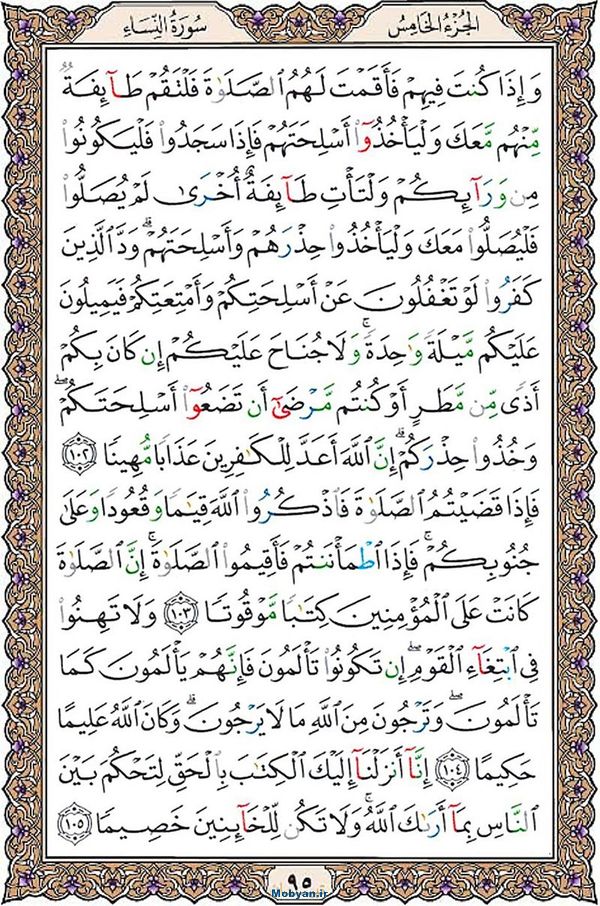 الجُزءُ الخَامِسُ
سُورَةُ النِّسَاءِ
وَإِذَا كُنتَ فِيهِمْ فَأَقَمْتَ لَهُمُ ٱلصَّلَوٰةَ فَلْتَقُمْ طَآئِفَةٌ
مِّنْهُم مَّعَكَ وَلْيَأْخُذُوٓا۟ أَسْلِحَتَهُمْ فَإِذَا سَجَدُوا۟ فَلْيَكُونُوا۟
مِن وَرَآئِكُمْ وَلْتَأْتِ طَآئِفَةٌ أُخْرَىٰ لَمْ يُصَلُّوا۟
فَلْيُصَلُّوا۟ مَعَكَ وَلْيَأْخُذُوا۟ حِذْرَهُمْ وَأَسْلِحَتَهُمْ ۗ وَدَّ ٱلَّذِينَ
كَفَرُوا۟ لَوْ تَغْفُلُونَ عَنْ أَسْلِحَتِكُمْ وَأَمْتِعَتِكُمْ فَيَمِيلُونَ
عَلَيْكُم مَّيْلَةً وَٰحِدَةً ۚ وَلَا جُنَاحَ عَلَيْكُمْ إِن كَانَ بِكُمْ
أَذًى مِّن مَّطَرٍ أَوْ كُنتُم مَّرْضَىٰٓ أَن تَضَعُوٓا۟ أَسْلِحَتَكُمْ ۖ
وَخُذُوا۟ حِذْرَكُمْ ۗ إِنَّ ٱللَّهَ أَعَدَّ لِلْكَٰفِرِينَ عَذَابًا مُّهِينًا ١٠٢
فَإِذَا قَضَيْتُمُ ٱلصَّلَوٰةَ فَٱذْكُرُوا۟ ٱللَّهَ قِيَٰمًا وَقُعُودًا وَعَلَىٰ
جُنُوبِكُمْ ۚ فَإِذَا ٱطْمَأْنَنتُمْ فَأَقِيمُوا۟ ٱلصَّلَوٰةَ ۚ إِنَّ ٱلصَّلَوٰةَ
كَانَتْ عَلَى ٱلْمُؤْمِنِينَ كِتَٰبًا مَّوْقُوتًا ١٠٣ وَلَا تَهِنُوا۟
فِى ٱبْتِغَآءِ ٱلْقَوْمِ ۖ إِن تَكُونُوا۟ تَأْلَمُونَ فَإِنَّهُمْ يَأْلَمُونَ كَمَا
تَأْلَمُونَ ۖ وَتَرْجُونَ مِنَ ٱللَّهِ مَا لَا يَرْجُونَ ۗ وَكَانَ ٱللَّهُ عَلِيمًا
حَكِيمًا ١٠٤ إِنَّآ أَنزَلْنَآ إِلَيْكَ ٱلْكِتَٰبَ بِٱلْحَقِّ لِتَحْكُمَ بَيْنَ
ٱلنَّاسِ بِمَآ أَرَىٰكَ ٱللَّهُ ۚ وَلَا تَكُن لِّلْخَآئِنِينَ خَصِيمًا ١٠٥
٩٥
Mobyan.ir